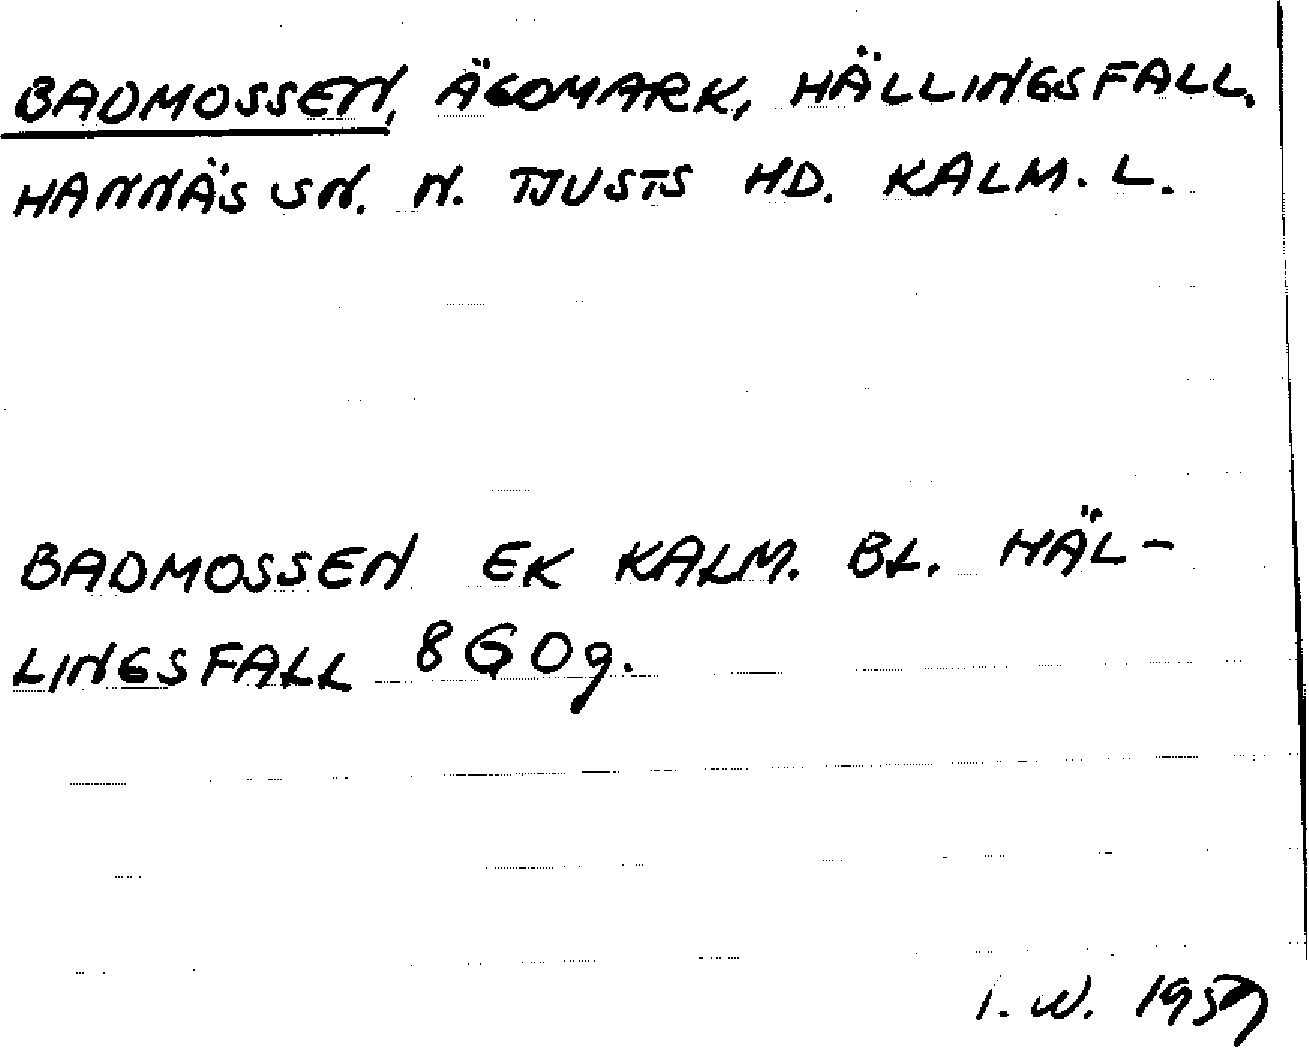 BADMOSSEN, ÄGOMARK, HÄLLINGSFALL,
HANNÄS SN. N. TJUSTS HD. KALM. L.
BADMOSSEN EK KALM. BL. HÄL-
LINGSFALL 8G0g.
I. W. 1959